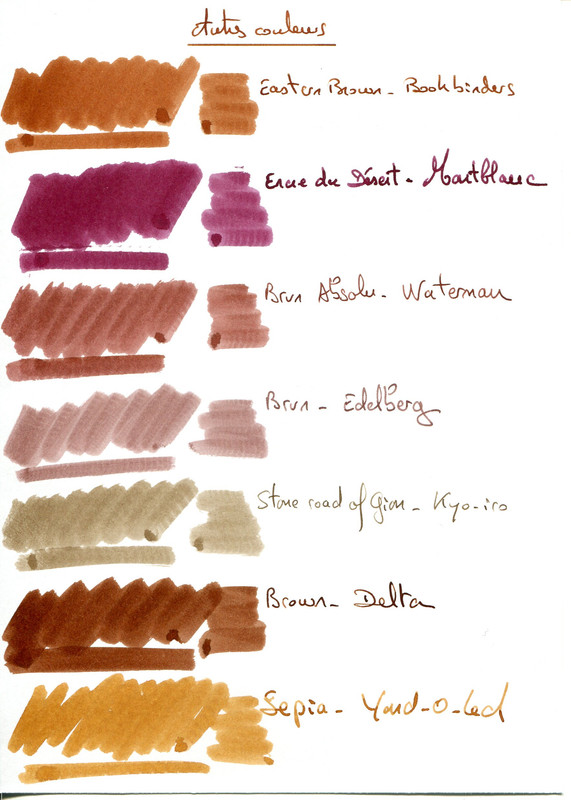 Autres couleurs
Eastern Brown - Bookbinders
Encre du Désert - Montblanc
Brun Absolu - Waterman
Brun - Edelberg
Stone road of Gion - Kyo-iro
Brown - Delta
Sepia - Yard-O-Led